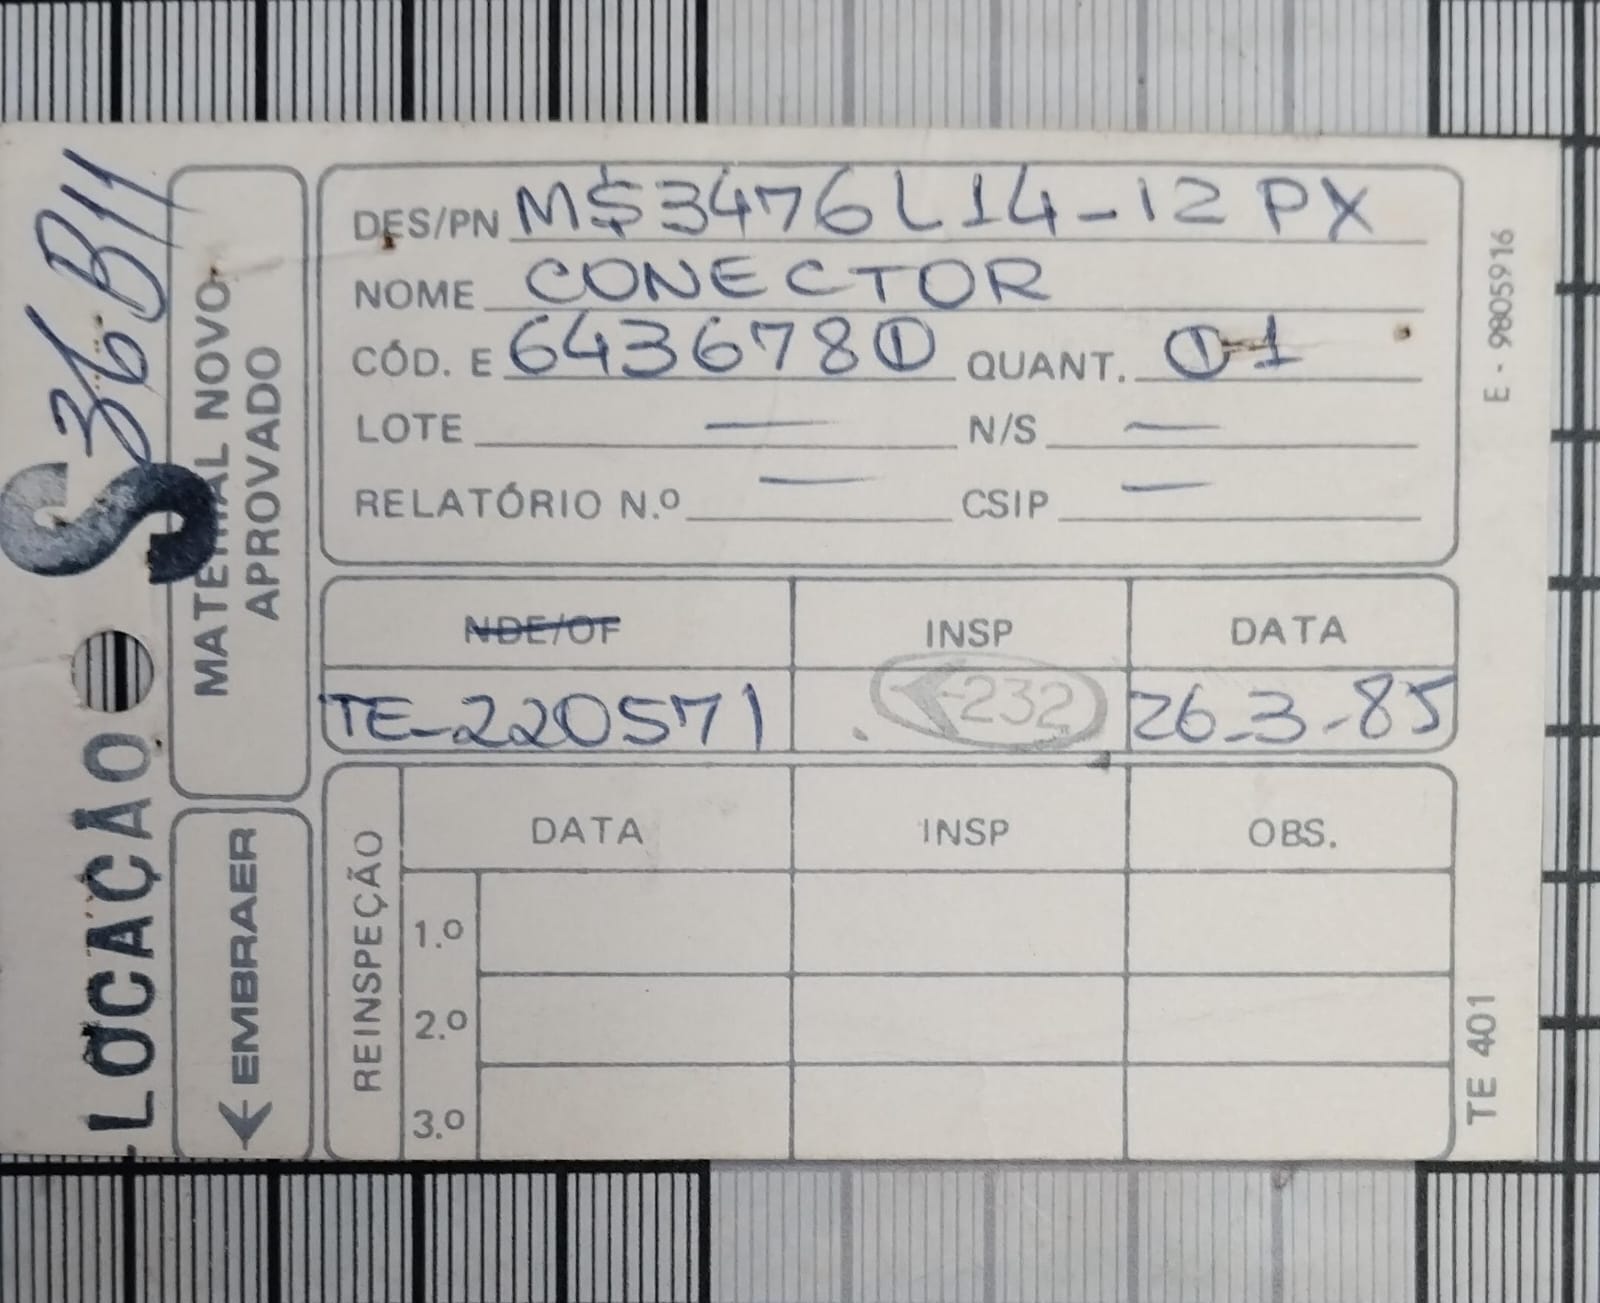 DES/PN MS3476L14-12PX
NOME CONECTOR
CÓD. E 6436780 QUANT. 01
LOTE — N/S —
RELATÓRIO N.º — CSIP —
NDE/OF INSP DATA
TE-220571 232 26-3-85
REINSPEÇÃO
DATA INSP OBS.
1.º
2.º
3.º
MATERIAL NOVO
APROVADO
EMBRAER
LOCAÇÃO S 36B11
E - 9805916
TE 401